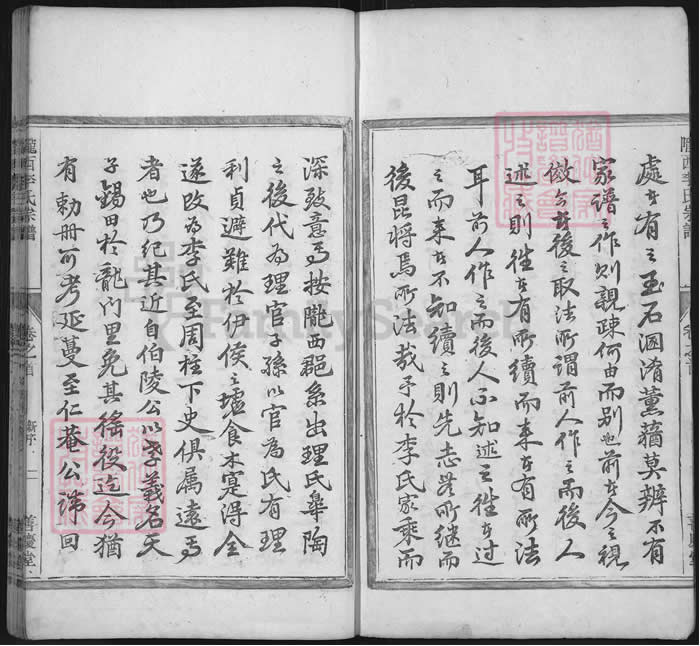 處者有之玉石溷淆薰蕕莫辨不有
家譜之作則親疎何由而別也前者今之視
倣今者後之取法所謂前人作之而後人
述之則往者有所續而来者有所法
耳前人作之而後人不知述之往者過
之而来者不知續之則先志芒所継而
後昆将焉所法哉予於李氏家乘而
深致意焉按隴西郡系出理氏皋陶
之後代為理官子孫以官為氏有理
利貞避難於伊侯之墟食木寔得全
遂改為李氏至周柱下史俱属遠焉
者也乃紀其近自伯陵公以孝義名天
子錫田於龍門里免其徭役迄今猶
有勅册可考延蔓至仁菴公諱回
隴西李氏宗譜
卷之首
新序
二
善慶堂
FamilySearch